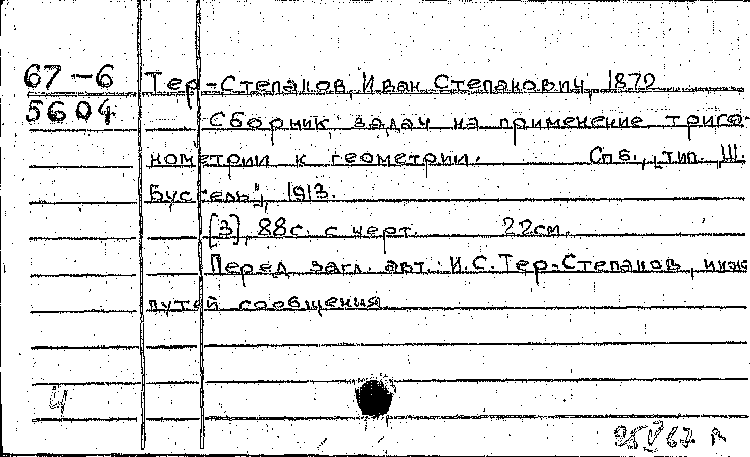 67-6
5604
Тер-Степанов, Иван Степанович, 1870
Сборник задач на применение триго-
нометрии к геометрии. Спб., "тип. Ш.
Буссель", 1913.
[3], 88с. с черт. 22см.
Перед загл. авт.: И.С. Тер-Степанов, инж.
путей сообщения
4
25 V 67